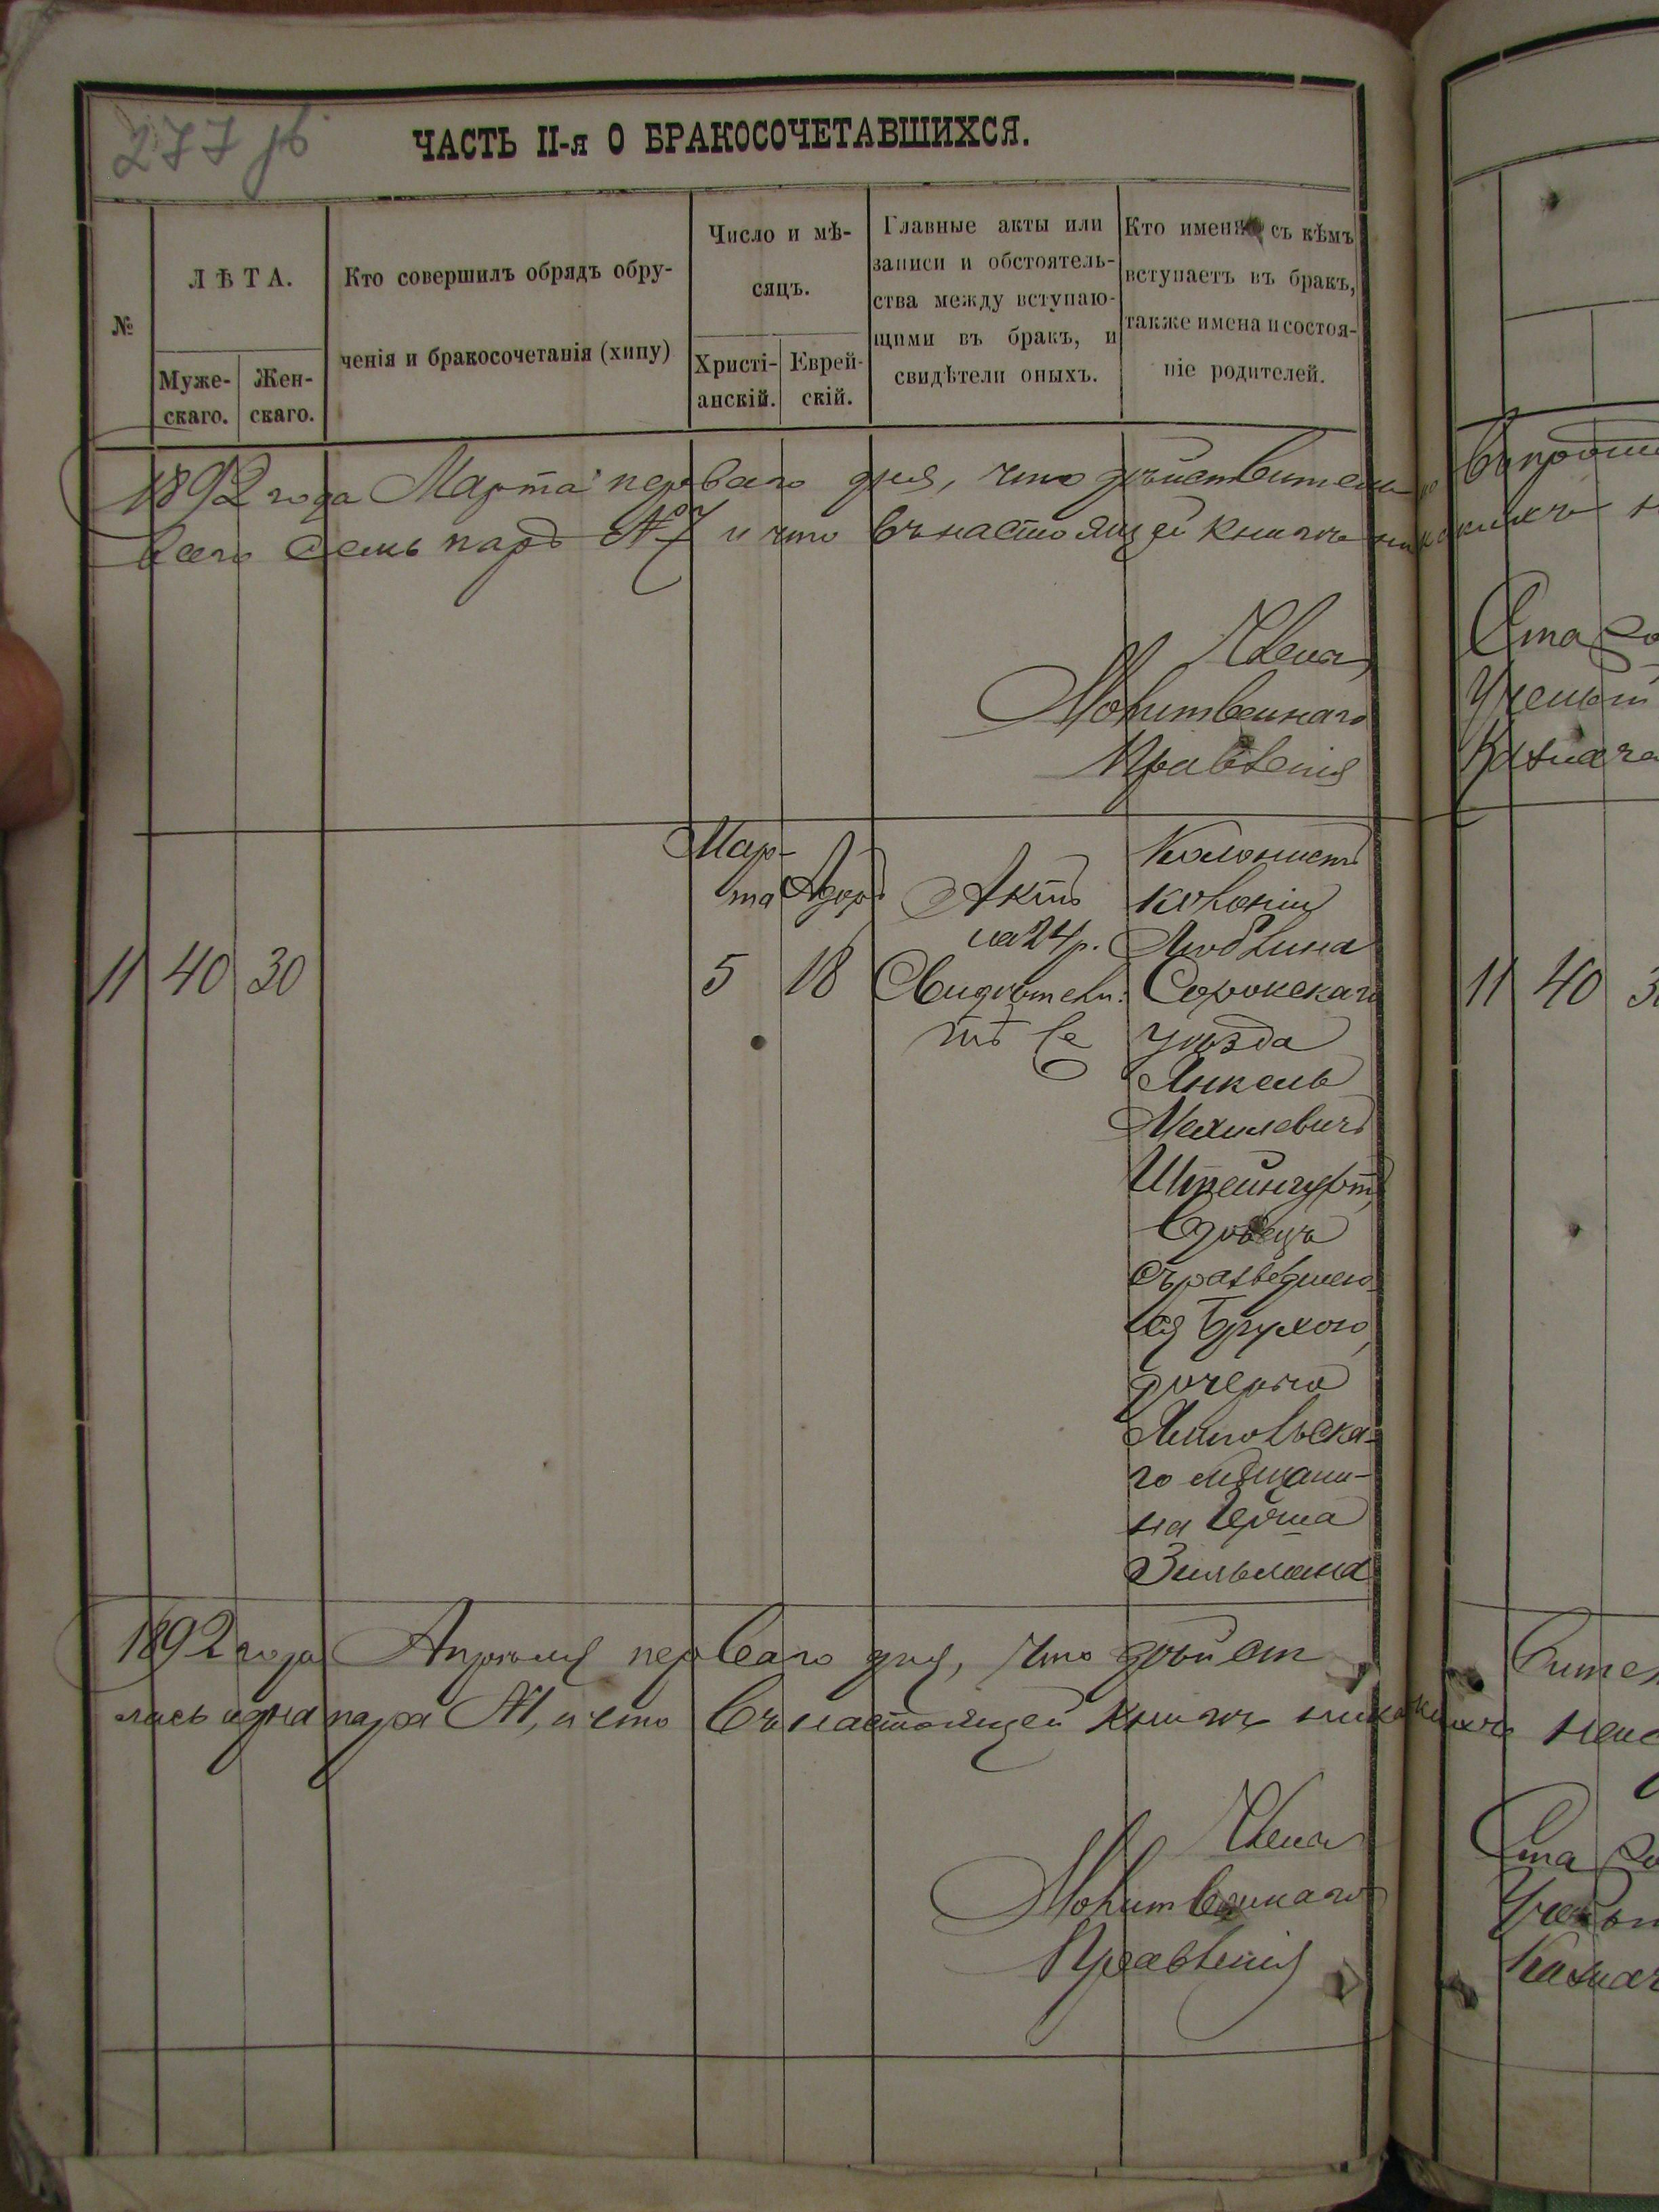 277 об
ЧАСТЬ II-я О БРАКОСОЧЕТАВШИХСЯ.
№
ЛѢТА.
Муже-
скаго.
Жен-
скаго.
Кто совершилъ обрядъ обру-
ченія и бракосочетанія (хипу)
Число и мѣ-
сяцъ.
Христі-
анскій.
Еврей-
скій.
Главные акты или
записи и обстоятель-
ства между вступаю-
щими въ бракъ, и
свидѣтели оныхъ.
Кто именно съ кѣмъ
вступаетъ въ бракъ,
также имена и состоя-
ніе родителей.
1892 года Марта перваго дня, что дѣйствительно
всего семь паръ №7 и что въ настоящей книгѣ никакихъ
Члена
Молитвеннаго
Правленія
11 40 30
Мар-
та
5
Адаръ
18
Актъ
на 24 р.
Свидѣтели:
тѣ же
Колонистъ
колоніи
Люблина
Сорокскаго
уѣзда
Янкель
Мехилевичъ
Штейнгартъ
вдовецъ
съ разведшею-
ся Брухою,
дочерью
Ямпольска-
го мѣщани-
на Герша
Зильмана
1892 года Апрѣля перваго дня, что дѣйст
лась одна пара №1, и что въ настоящей книгѣ никакихъ
Члена
Молитвеннаго
Правленія
Ста
Ученый
Казначе
11 40 3
вител
неис
Ста
Казнач